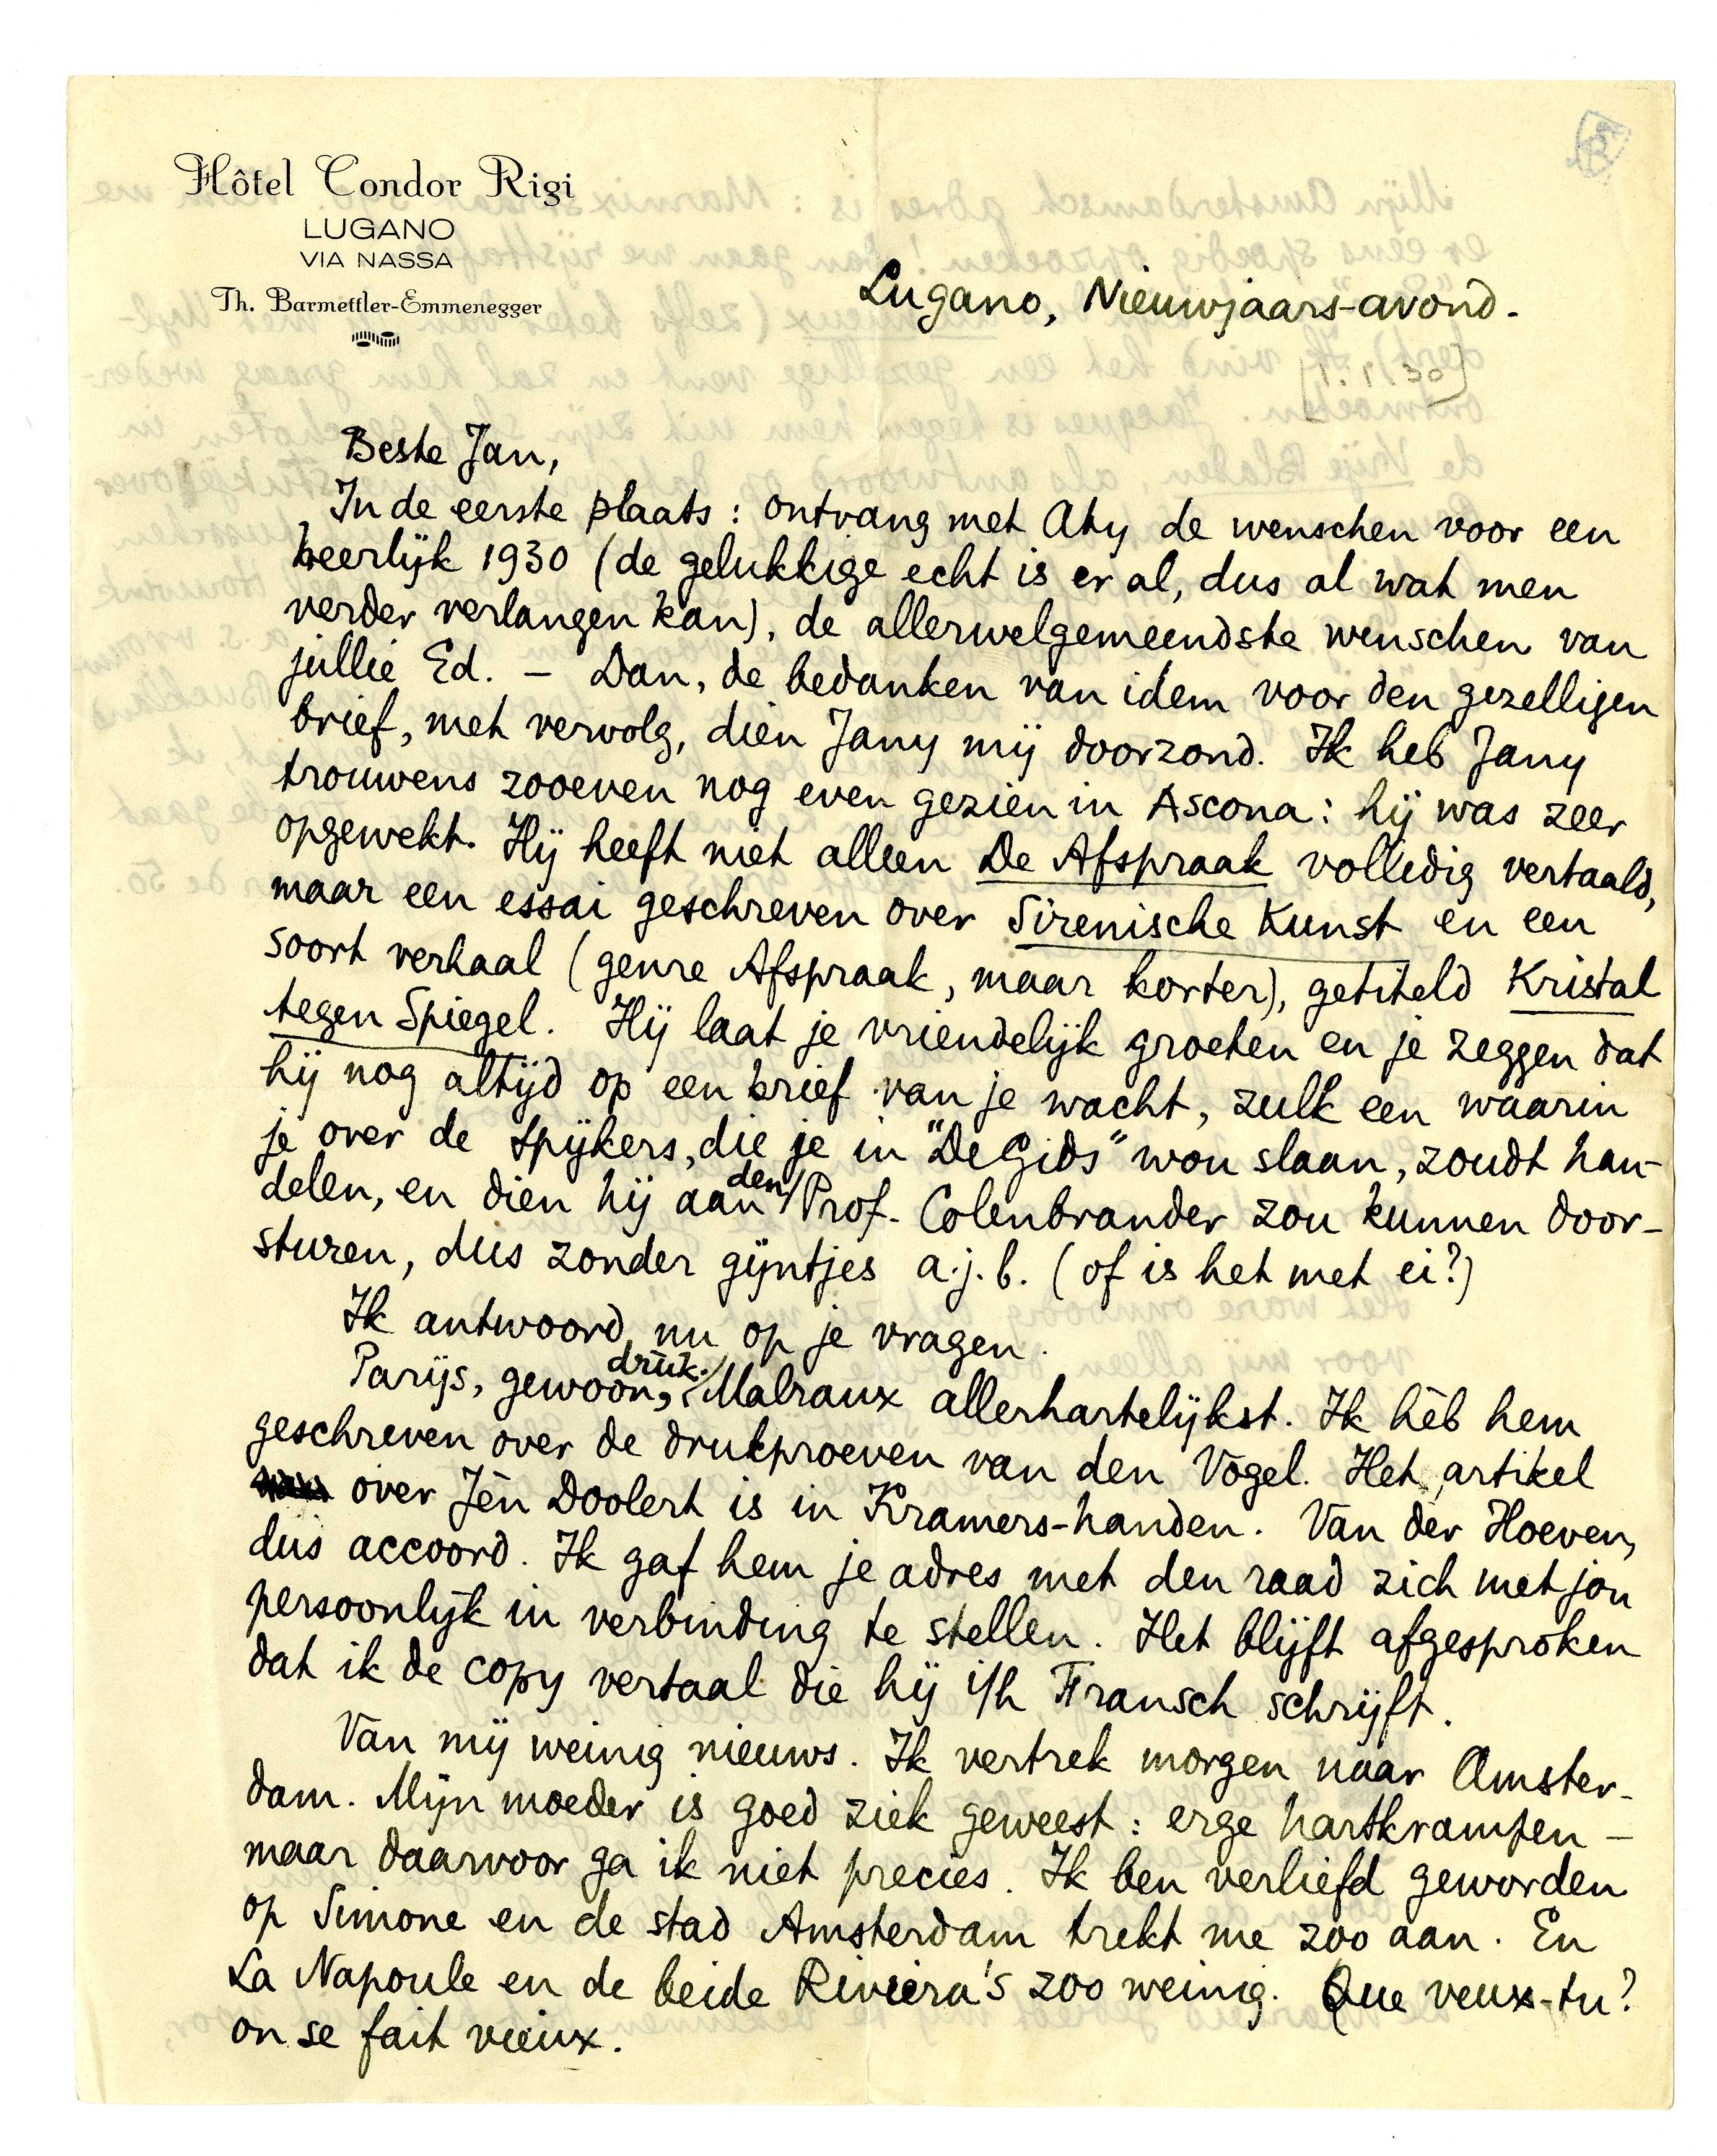 Hôtel Condor Rigi
LUGANO
VIA NASSA
Th. Barmettler-Emmenegger
Lugano, Nieuwjaars-avond.
[1.1.30]
Beste Jan,
In de eerste plaats: ontvang met Aty de wenschen voor een
heerlijk 1930 (de gelukkige echt is er al, dus al wat men
verder verlangen kan), de allerwelgemeendste wenschen van
jullie Ed. – Dan, de bedanken van idem voor den gezelligen
brief, met vervolg, dien Jany mij doorzond. Ik heb Jany
trouwens zooeven nog even gezien in Ascona: hij was zeer
opgewekt. Hij heeft niet alleen De Afspraak volledig vertaald,
maar een essai geschreven over Sirenische Kunst en een
soort verhaal (genre Afspraak, maar korter), getiteld Kristal
tegen Spiegel. Hij laat je vriendelijk groeten en je zeggen dat
hij nog altijd op een brief van je wacht, zulk een waarin
je over de spijkers, die je in "De Gids" wou slaan, zoudt han-
delen, en dien hij aan den Prof. Colenbrander zou kunnen door-
sturen, dus zonder gijntjes a.j.b. (of is het met ei?)
Ik antwoord nu op je vragen.
Parijs, gewoon, druk. Malraux allerhartelijkst. Ik hèb hem
geschreven over de drukproeven van den Vogel. Het artikel
over Jèn Doolert is in Kramers-handen. Van der Hoeven,
dus accoord. Ik gaf hem je adres met den raad zich met jou
persoonlijk in verbinding te stellen. Het blijft afgesproken
dat ik de copy vertaal die hij i/h Fransch schrijft.
Van mij weinig nieuws. Ik vertrek morgen naar Amster-
dam. Mijn moeder is goed ziek geweest: erge hartkrampen –
maar daarvoor ga ik niet precies. Ik ben verliefd geworden
op Simone en de stad Amsterdam trekt me zoo aan. En
La Napoule en de beide Riviera's zoo weinig. Que veux-tu?
on se fait vieux.